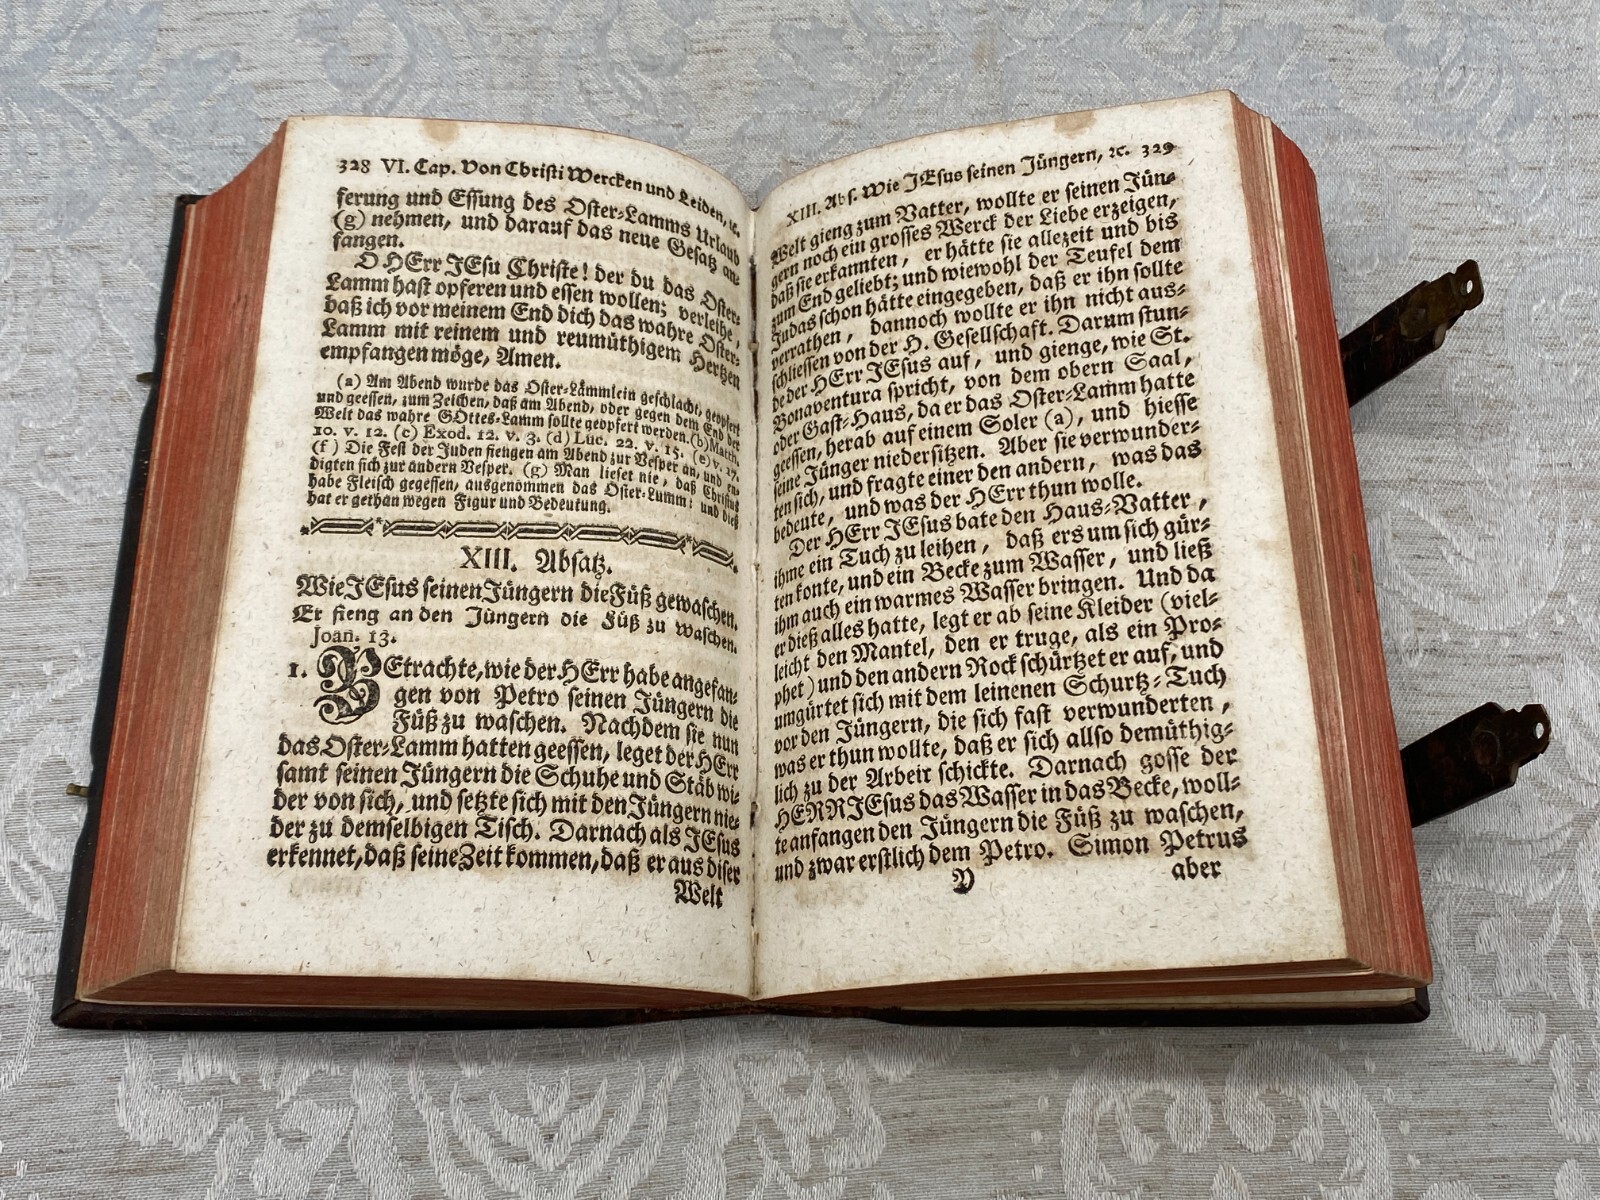 328 VI. Cap. Von Christi Wercken und Leiden, ꝛc.
ferung und Essung des Oster-Lamms Urlaub
(g) nehmen, und darauf das neue Gesatz an-
fangen.
O HErr JEsu Christe! der du das Oster-
Lamm hast opferen und essen wollen; verleihe,
daß ich vor meinem End dich das wahre Oster-
Lamm mit reinem und reumüthigem Hertzen
empfangen möge, Amen.
(a) Am Abend wurde das Oster-Lämmlein geschlacht, geopfert
und geessen, zum Zeichen, daß am Abend, oder gegen dem End der
Welt das wahre GOttes-Lamm sollte geopfert werden. (b) Matth.
10. v. 12. (c) Exod. 12. v. 3. (d) Luc. 22. v. 15. (e) v. 17.
(f) Die Fest der Juden fiengen am Abend zur Vesper an, und en-
digten sich zur andern Vesper. (g) Man lieset nie, daß Christus
habe Fleisch gegessen, ausgenommen das Oster-Lamm: und dieß
hat er gethan wegen Figur und Bedeutung.
XIII. Absatz.
Wie JEsus seinen Jüngern die Füß gewaschen.
Er fieng an den Jüngern die Füß zu waschen.
Joan. 13.
1. BEtrachte, wie der HErr habe angefan-
gen von Petro seinen Jüngern die
Füß zu waschen. Nachdem sie nun
das Oster-Lamm hatten geessen, leget der HErr
samt seinen Jüngern die Schuhe und Stäb wi-
der von sich, und setzte sich mit den Jüngern nie-
der zu demselbigen Tisch. Darnach als JEsus
erkennet, daß seine Zeit kommen, daß er aus diser
Welt
XIII. Abs. Wie JEsus seinen Jüngern, ꝛc. 329
Welt gieng zum Vatter, wollte er seinen Jün-
gern noch ein grosses Werck der Liebe erzeigen,
daß sie erkannten, er hätte sie allezeit und bis
zum End geliebt; und wiewohl der Teufel dem
Judas schon hätte eingegeben, daß er ihn sollte
verrathen, dannoch wollte er ihn nicht aus-
schliessen von der H. Gesellschaft. Darum stun-
de der HErr JEsus auf, und gienge, wie St.
Bonaventura spricht, von dem obern Saal,
oder Gast-Haus, da er das Oster-Lamm hatte
geessen, herab auf einem Soler (a), und hiesse
seine Jünger nidersitzen. Aber sie verwunder-
ten sich, und fragte einer den andern, was das
bedeute, und was der HErr thun wolle.
Der HErr JEsus bate den Haus-Vatter,
ihme ein Tuch zu leihen, daß ers um sich gür-
ten konte, und ein Becke zum Wasser, und ließ
ihm auch ein warmes Wasser bringen. Und da
er dieß alles hatte, legt er ab seine Kleider (viel-
leicht den Mantel, den er truge, als ein Pro-
phet) und den andern Rock schürtzet er auf, und
umgürtet sich mit dem leinenen Schurtz-Tuch
vor den Jüngern, die sich fast verwunderten,
was er thun wollte, daß er sich allso demüthig-
lich zu der Arbeit schickte. Darnach gosse der
HERR JEsus das Wasser in das Becke, woll-
te anfangen den Jüngern die Füß zu waschen,
und zwar erstlich dem Petro. Simon Petrus
Y aber